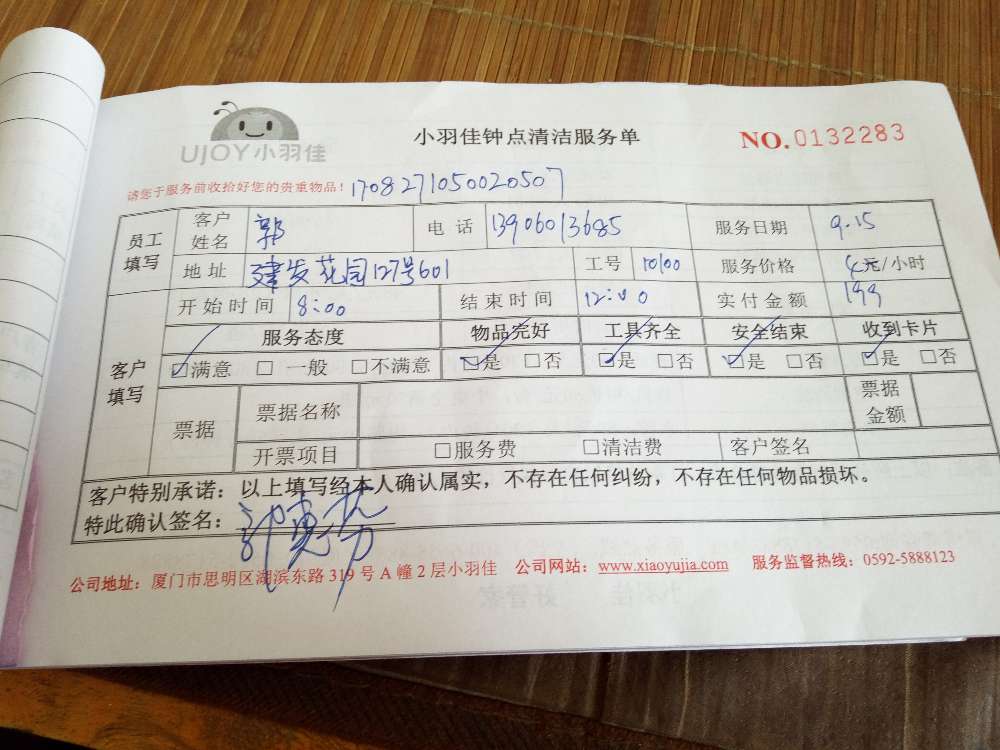 UJOY小羽佳
小羽佳钟点清洁服务单
NO.0132283
请您于服务前收拾好您的贵重物品！1708271050020507
员工填写 客户姓名 郭 电话 13906013685 服务日期 9.15
地址 建发花园127号601 工号 10100 服务价格 元/小时
客户填写 开始时间 8:00 结束时间 12:00 实付金额 199
服务态度 物品完好 工具齐全 安全结束 收到卡片
☑满意 □一般 □不满意 ☑是 □否 ☑是 □否 ☑是 □否 ☑是 □否
票据 票据名称 票据金额
开票项目 □服务费 □清洁费 客户签名
客户特别承诺：以上填写经本人确认属实，不存在任何纠纷，不存在任何物品损坏。
特此确认签名：
公司地址：厦门市思明区湖滨东路319号A幢2层小羽佳 公司网站：www.xiaoyujia.com 服务监督热线：0592-5888123